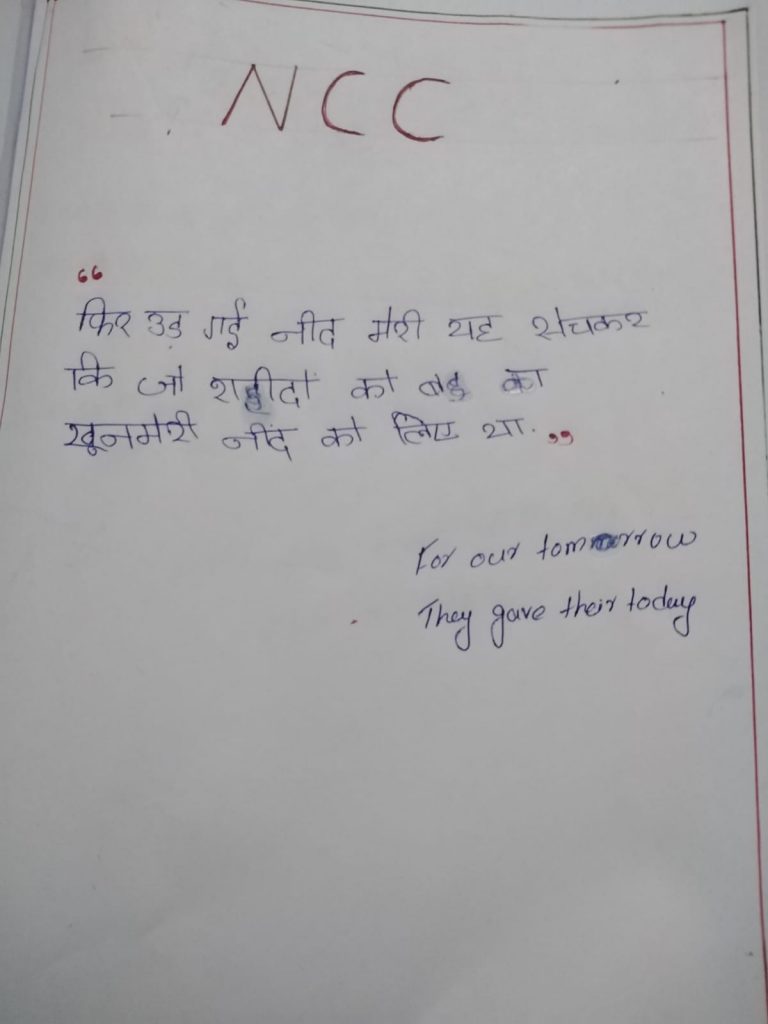 NCC
“
फिर उड़ गई नीद मेरी यह सोचकर
कि जो शहीदों को का
खूनमेरी नींद को लिए था.”
For our tomorrow
They gave their today